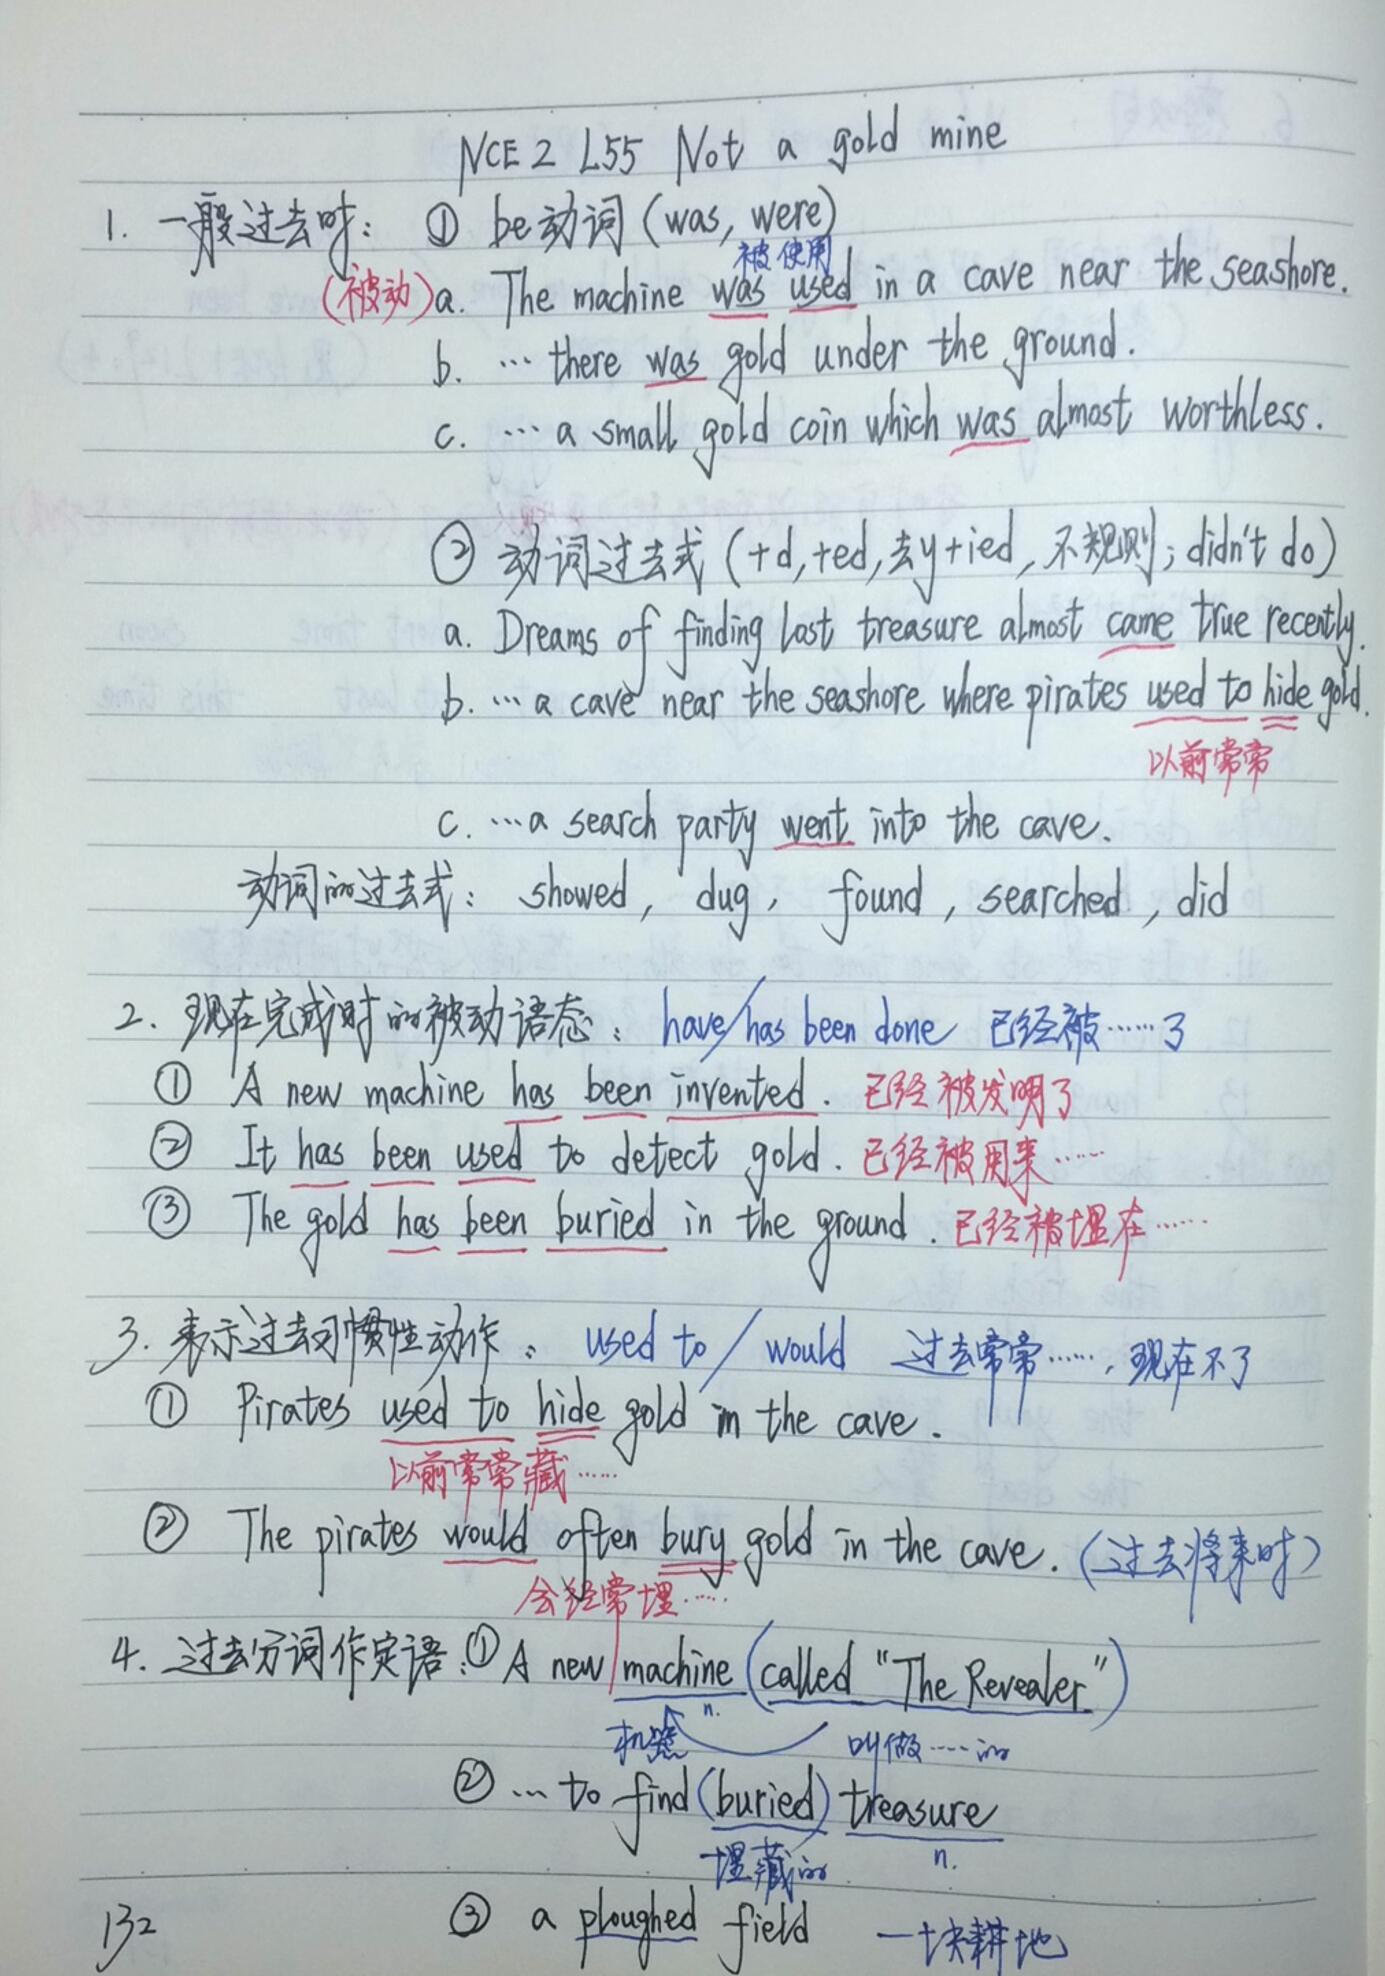 NCE 2 L55 Not a gold mine
1. 一般过去时: ① be动词 (was, were)
被使用
(被动) a. The machine was used in a cave near the seashore.
b. … there was gold under the ground.
c. … a small gold coin which was almost worthless.
② 动词过去式 (+d, +ed, 去y+ied, 不规则; didn't do)
a. Dreams of finding lost treasure almost came true recently.
b. … a cave near the seashore where pirates used to hide gold.
以前常常
c. … a search party went into the cave.
动词的过去式: showed, dug, found, searched, did
2. 现在完成时的被动语态: have/has been done 已经被……了
① A new machine has been invented. 已经被发明了
② It has been used to detect gold. 已经被用来……
③ The gold has been buried in the ground. 已经被埋在……
3. 表示过去习惯性动作: used to / would 过去常常……, 现在不了
① Pirates used to hide gold in the cave.
以前常常藏……
② The pirates would often bury gold in the cave. (过去将来时)
会经常埋……
4. 过去分词作定语: ① A new machine (called "The Revealer")
n.
机器 叫做……的
② … to find (buried) treasure
埋藏的 n.
③ a ploughed field 一块耕地
132